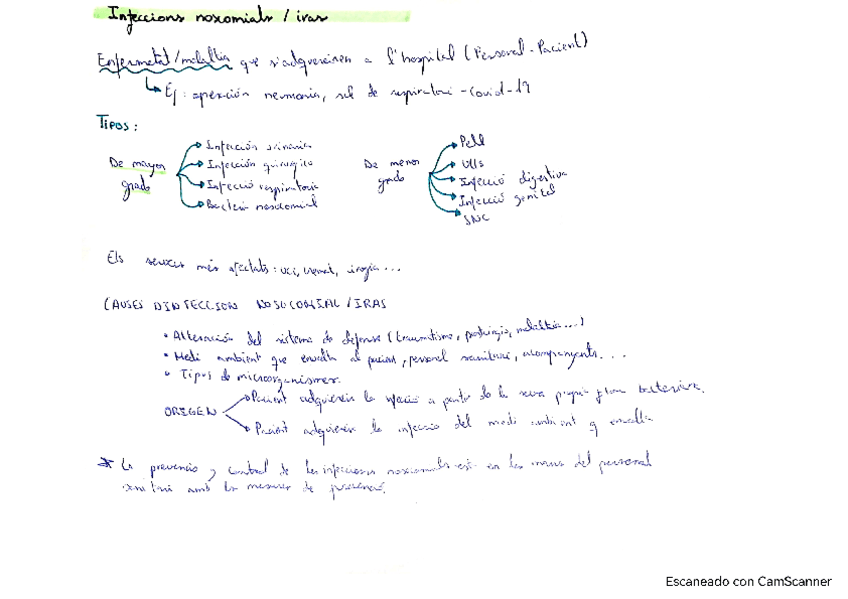 Infeccions noxomials / iras
Enfermetat/malaltia que s'adquereixen a l'hospital (Personal-Pacient)
Ej: operación neumonia, de respiratori - Covid-19
TIPOS:
De mayor grado
Infección urinaria
Infección quirurgica
Infecció respiratoria
Bacteri nosocomial
De menor grado
Pell
Ulls
Infecció digestiva
Infecció genital
SNC
Els serveis més afectats: uci, cremat, cirugia...
CAUSES D'INFECCION NOSOCOMIAL / IRAS
• Alteración del sistema de defensa (traumatisme, malaltia...)
• Medi ambient que envolta al pacient, personal sanitari, acompanyants...
• Tipos de microorganismes.
ORIGEN
Pacient adquireix la infecció a partir de la seva propia flora bacteriana.
Pacient adquireix la infecció del medi ambient q envolta
* La prevencio y control de les infeccions noxomials està en les mans del personal
sanitari amb les mesures de prevenció.
Escaneado con CamScanner